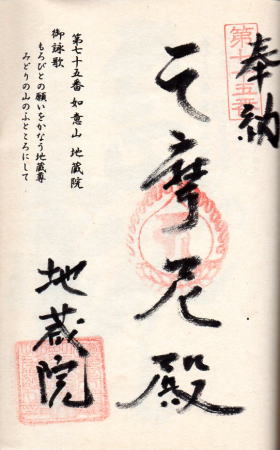 奉納
第七十五番
摩尼殿
地蔵院
第七十五番 如意山 地蔵院
御詠歌
もろびとの願いをかなう地蔵尊
みどりの山のふところにして